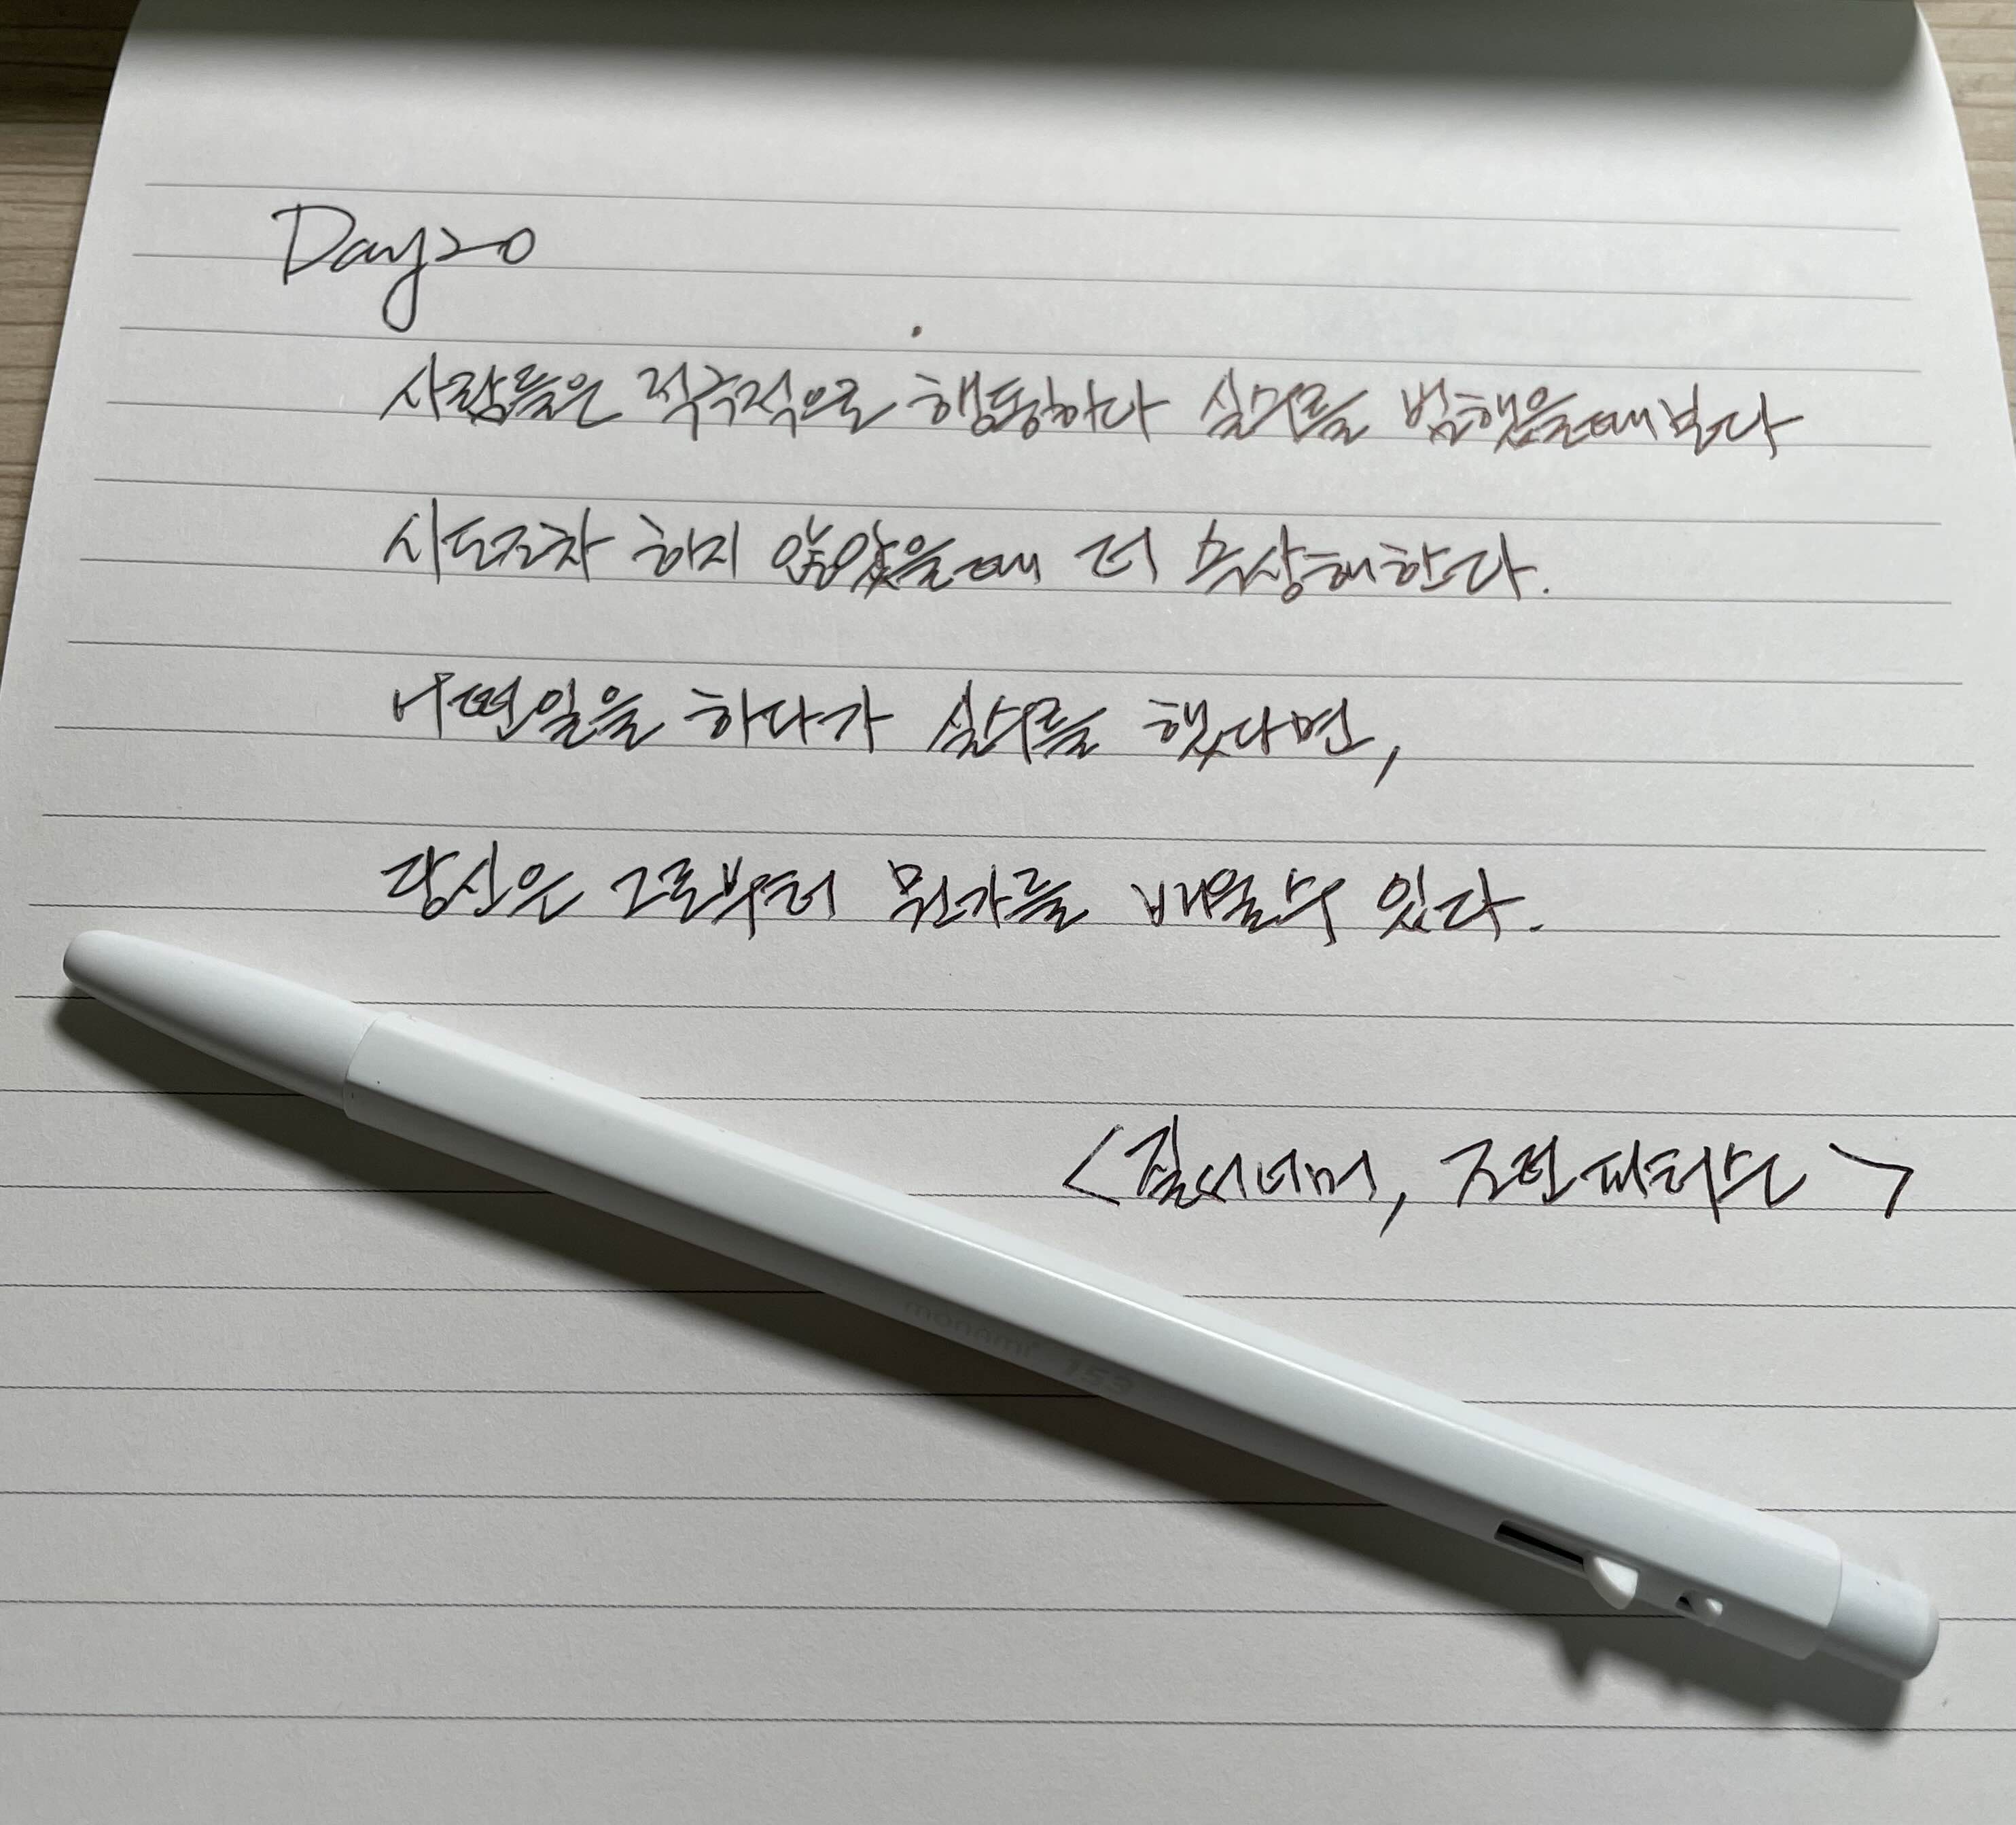 Day20
사람들은 적극적으로 행동하다 실수를 범했을때보다
시도조차 하지 않았을때 더 속상해한다.
어떤일을 하다가 실수를 했다면,
당신은 그로부터 뭔가를 배울수 있다.
<질서너머, 조던피터슨>
monami 153